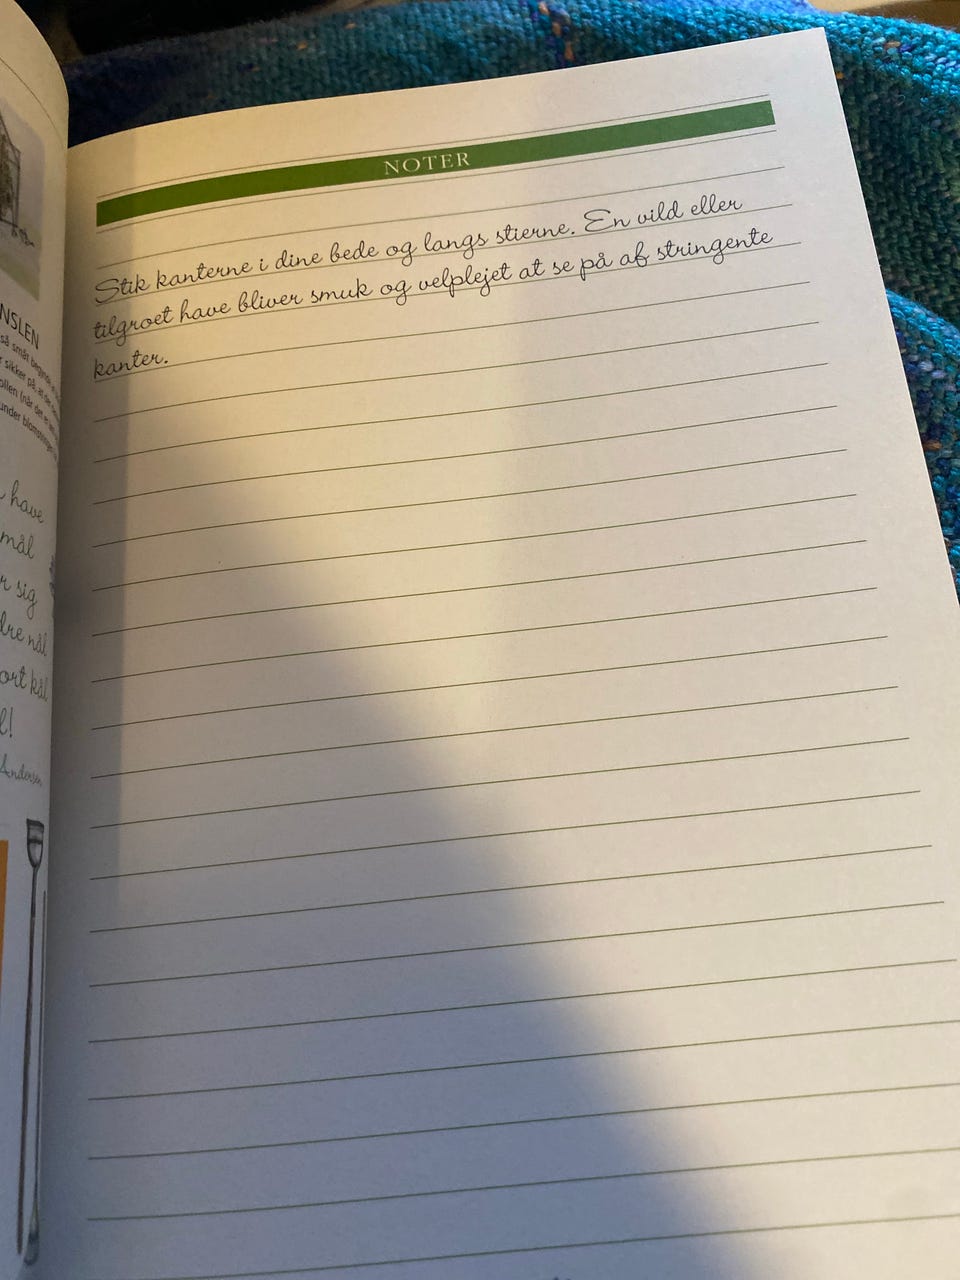 NOTER
Stik kanterne i dine bede og langs stierne. En vild eller
tilgroet have bliver smuk og velplejet at se på af stringente
kanter.
NSLEN
så småt begynde
r sikker på, at de
ollen (når det er
under blomstringen
have
mål
r sig
dre nål
ort kål
l!
Andersen